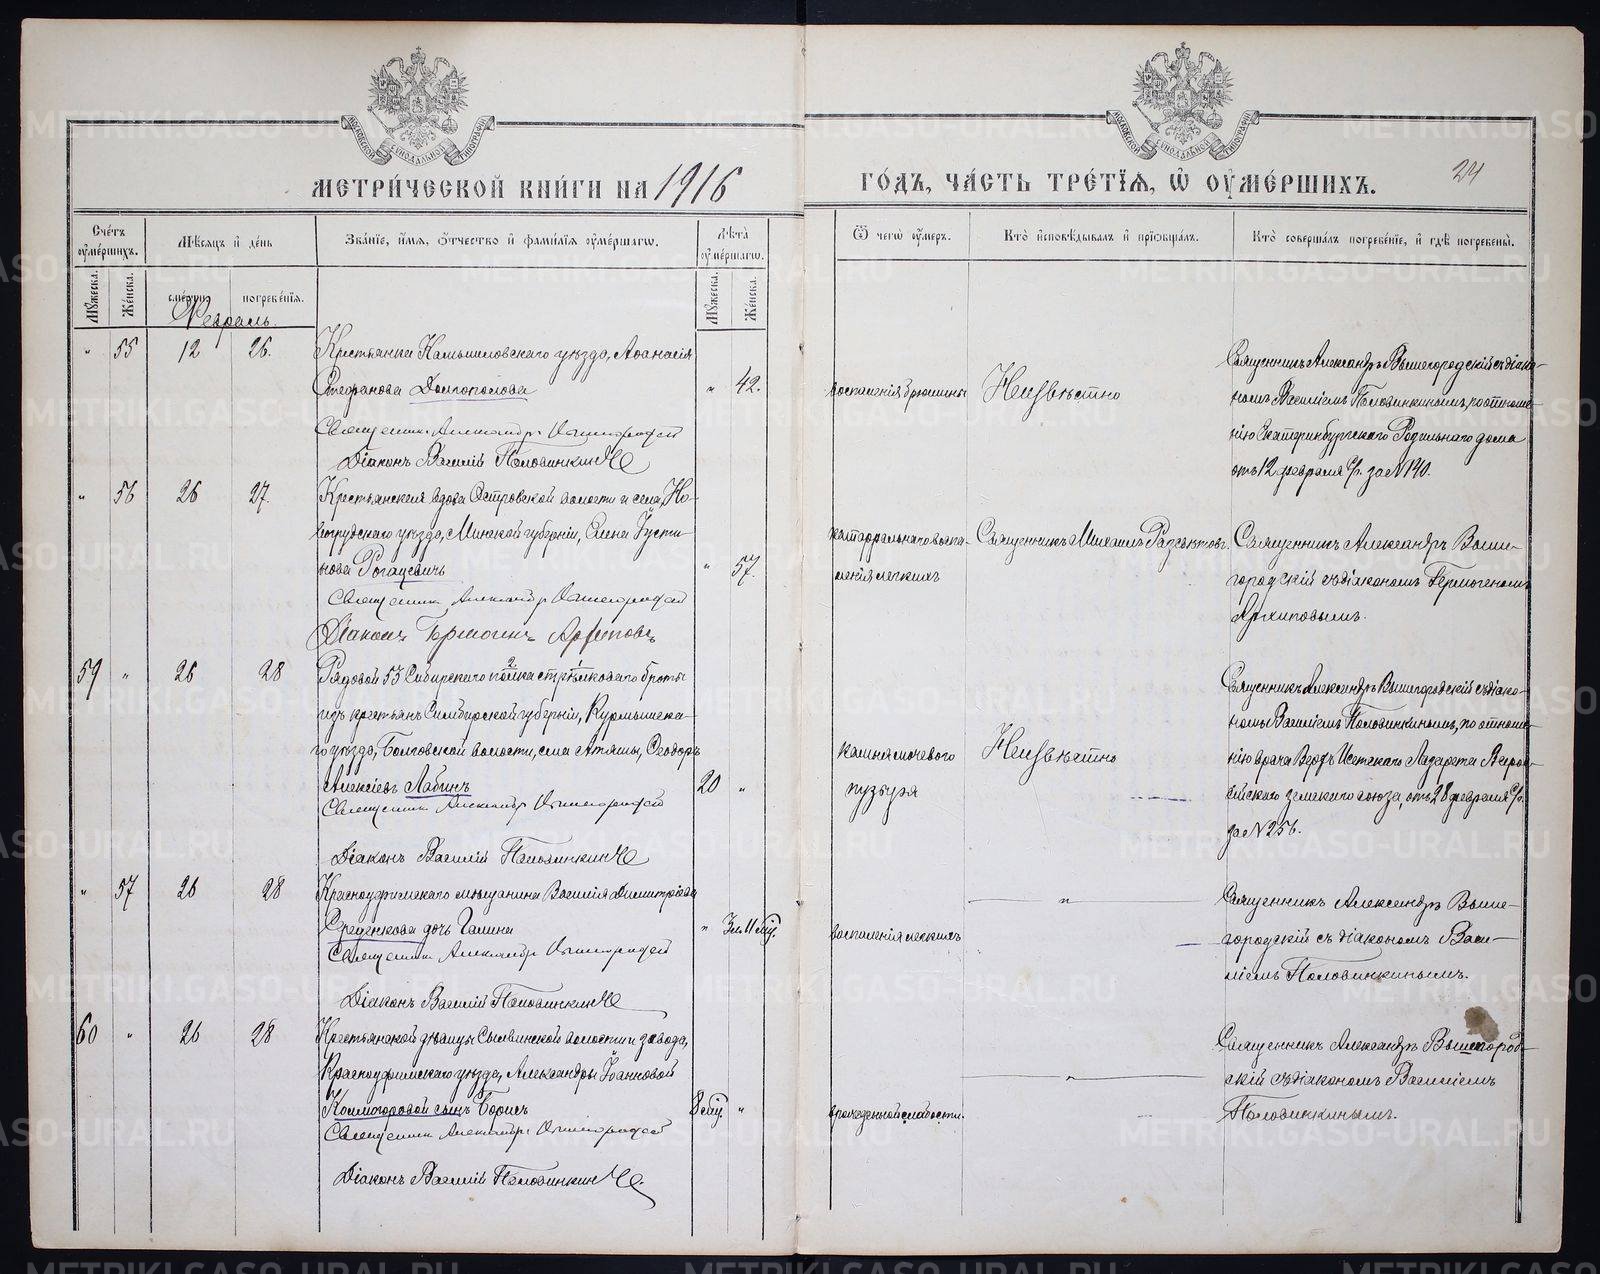 МЕТРИ́ЧЕСКОЙ КНИ́ГИ НА 1916
ГО́ДЪ, ЧА́СТЬ ТРЕ́ТЇѦ, Ѡ҆ ОУ҆МЕ́РШИХЪ.
24
Сче́тъ оу҆ме́ршихъ.
Мѣ́сѧцъ и҆ де́нь
Зва́нїе, и҆́мѧ, ѻ҆́тчество и҆ фами́лїѧ оу҆ме́ршагѡ.
Лѣ́та оу҆ме́ршагѡ.
Ѿ чегѡ̀ оу҆́меръ.
Кто̀ и҆сповѣ́дывалъ и҆ прїѡбща́лъ.
Кто̀ соверша́лъ погребе́нїе, и҆ гдѣ̀ погребены̀.
Мꙋ́жеска.
Же́нска.
сме́рти.
погребе́нїѧ.
Мꙋ́жеска.
Же́нска.
Февраль.
" 55 12 26. Крестьянка Камышловскаго уѣзда, Аѳанасія
Стефанова Долгополова " 42.
Священникъ Александръ Вышегородскій
Діаконъ Василій Половинкинъ
воспаленія брюшины
Неизвѣстно
Священникъ Александръ Вышегородскій съ діако-
номъ Василіемъ Половинкинымъ, по отноше-
нію Екатеринбургскаго Родильнаго дома
отъ 12 февраля с/г. за № 140.
" 56 26 27. Крестьянская вдова Островской волости и села, Но-
вогрудскаго уѣзда, Минской губерніи, Елена Іусти-
нова Рогацевичъ " 57.
Священникъ Александръ Вышегородскій
Діаконъ Гермогенъ Архиповъ
катаррального воспа-
ленія легкихъ
Священникъ Михаилъ
Священникъ Александръ Выше-
городскій съ діакономъ Гермогеномъ
Архиповымъ.
59 " 26 28 Рядовой 53 Сибирскаго 2 полка стрѣлковаго 1 роты
изъ крестьянъ Симбирской губерніи, Курмышска-
го уѣзда, волости, села Атяшы, Ѳеодоръ
Алексіевъ Лабинъ 20 "
Священникъ Александръ Вышегородскій
Діаконъ Василій Половинкинъ
камня мочевого
пузыря
Неизвѣстно
Священникъ Александръ Вышегородскій съ діако-
номъ Василіемъ Половинкинымъ, по отноше-
нію врача Верхъ Исетскаго Лазарета Всерос-
сійскаго земскаго союза, отъ 28 февраля с/г.
за № 256.
" 57 26 28 Красноуфимскаго мѣщанина Василія Димитріева
Среденкова дочь Галина " 3 л. 11 мѣс.
Священникъ Александръ Вышегородскій
Діаконъ Василій Половинкинъ
воспаленія легкихъ
— " —
Священникъ Александръ Выше-
городскій съ діакономъ Васи-
ліемъ Половинкинымъ.
60 " 26 28 Крестьянской дѣвицы Сылвинской волости и завода,
Красноуфимскаго уѣзда, Александры Іоанновой
Колмогоровой сынъ Борисъ 8 мѣс. "
Священникъ Александръ Вышегородскій
Діаконъ Василій Половинкинъ.
врожденной слабости.
— " —
Священникъ Александръ Вышегород-
скій съ діакономъ Василіемъ
Половинкинымъ.
METRIKI.GASO-URAL.RU